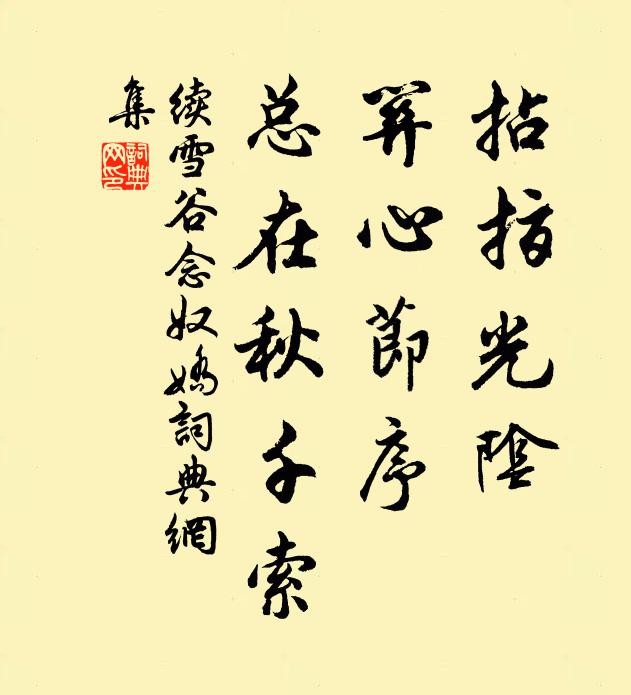 拈指光陰
筭心節序
总在秋千索
续雪谷念奴嬌詞典網
集
詞典
网印